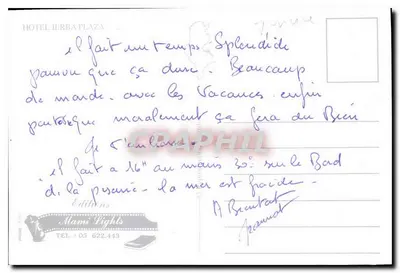 HOTEL JERBA PLAZA
il fait un temps Splendide
pourvu que ça dure. Beaucoup
de monde avec les Vacances enfin
puisque moralement ça fera du Bien
Je t'embrasse
il fait a 16° au mois 30° sur le Bord
de la piscine - la mer est froide.
A Bientot
Editions
Mami Lights
TEL. : 05 622.445
CRAPHIL